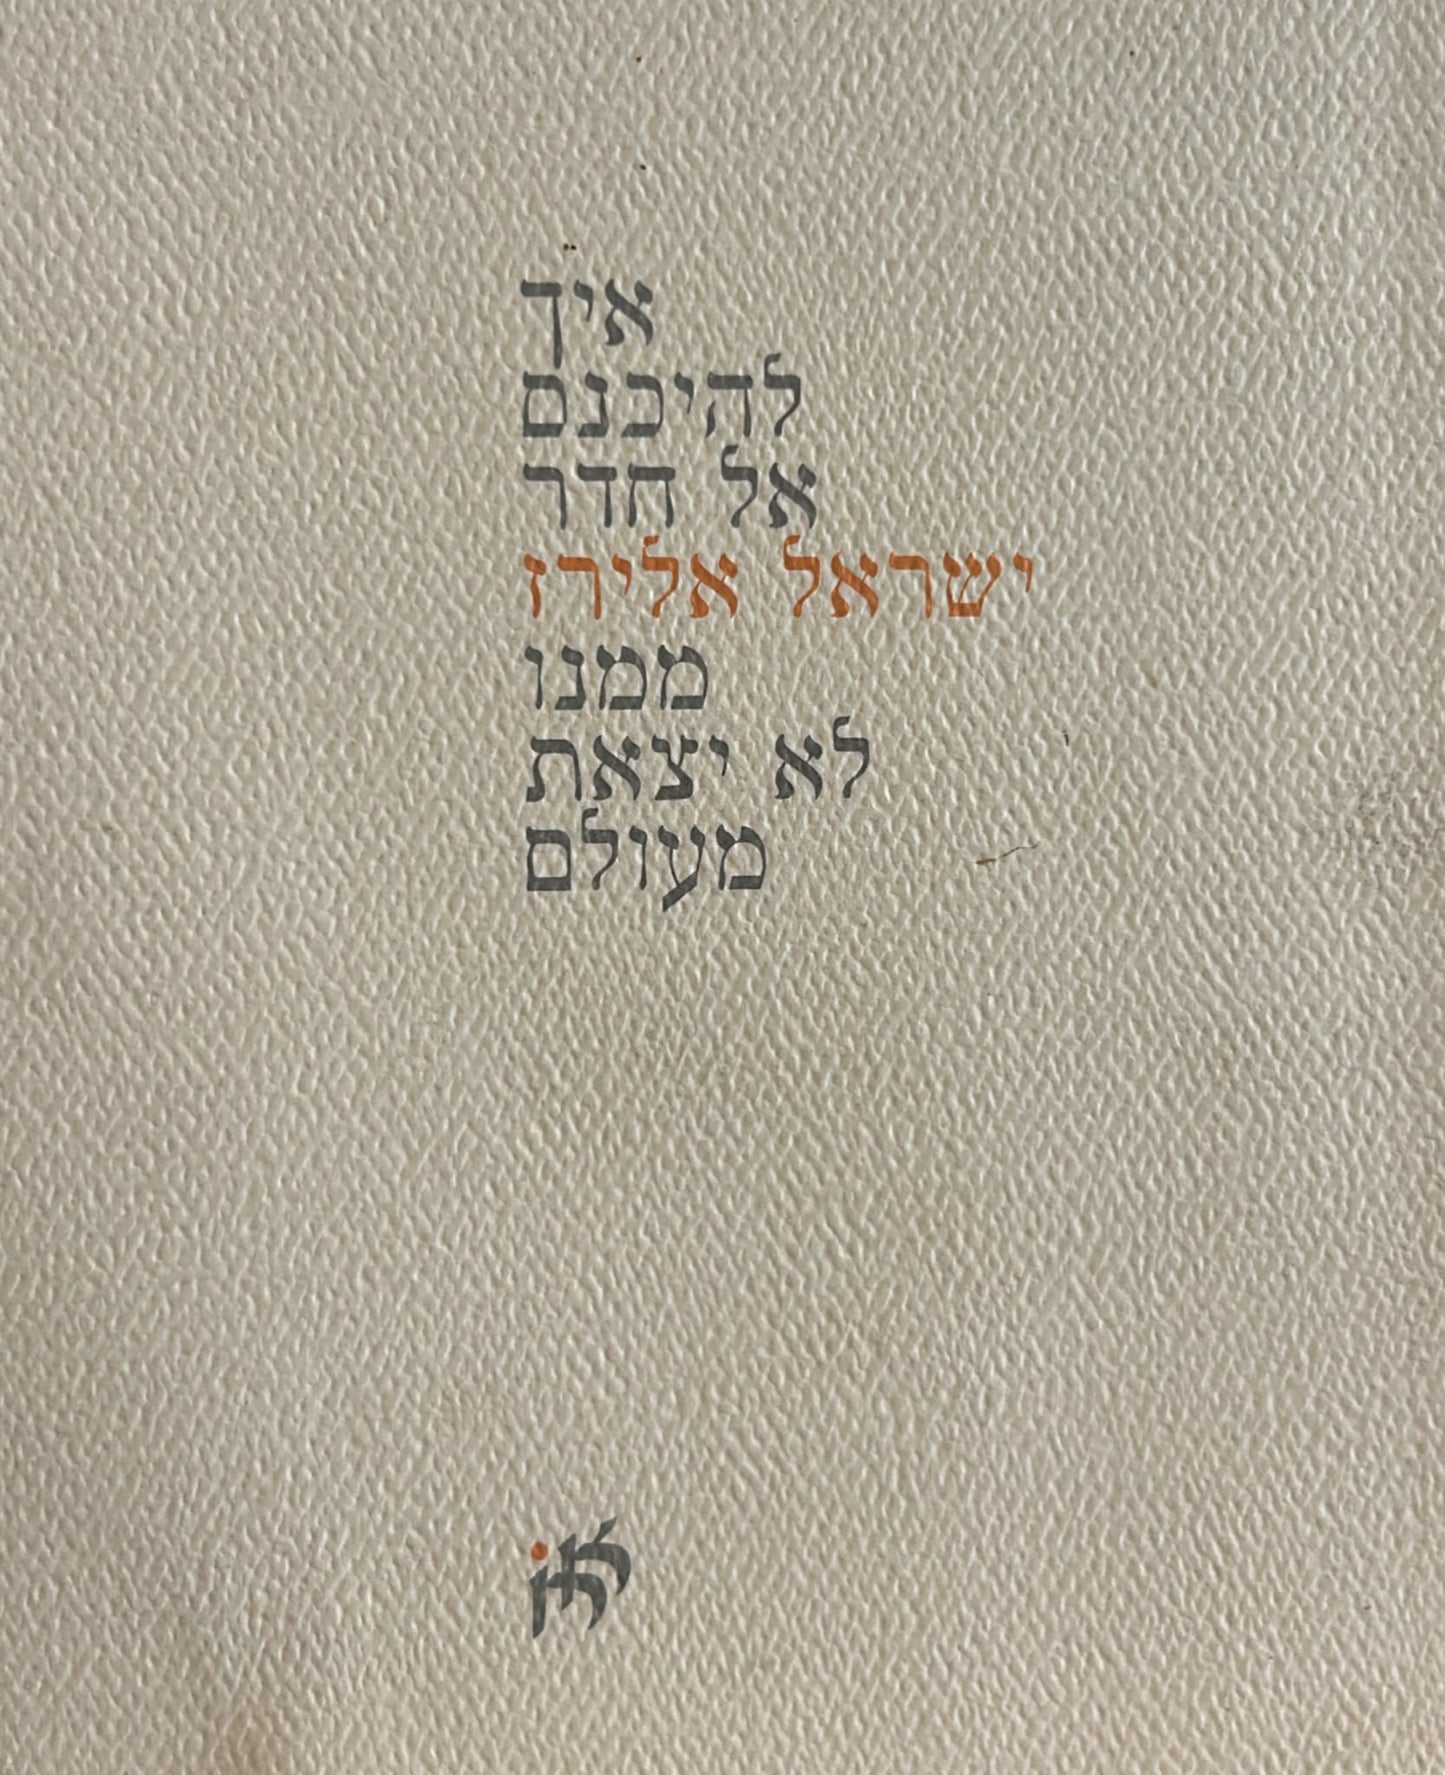 איך
להיכנס
אל חדר
ישראל אלירז
ממנו
לא יצאת
מעולם